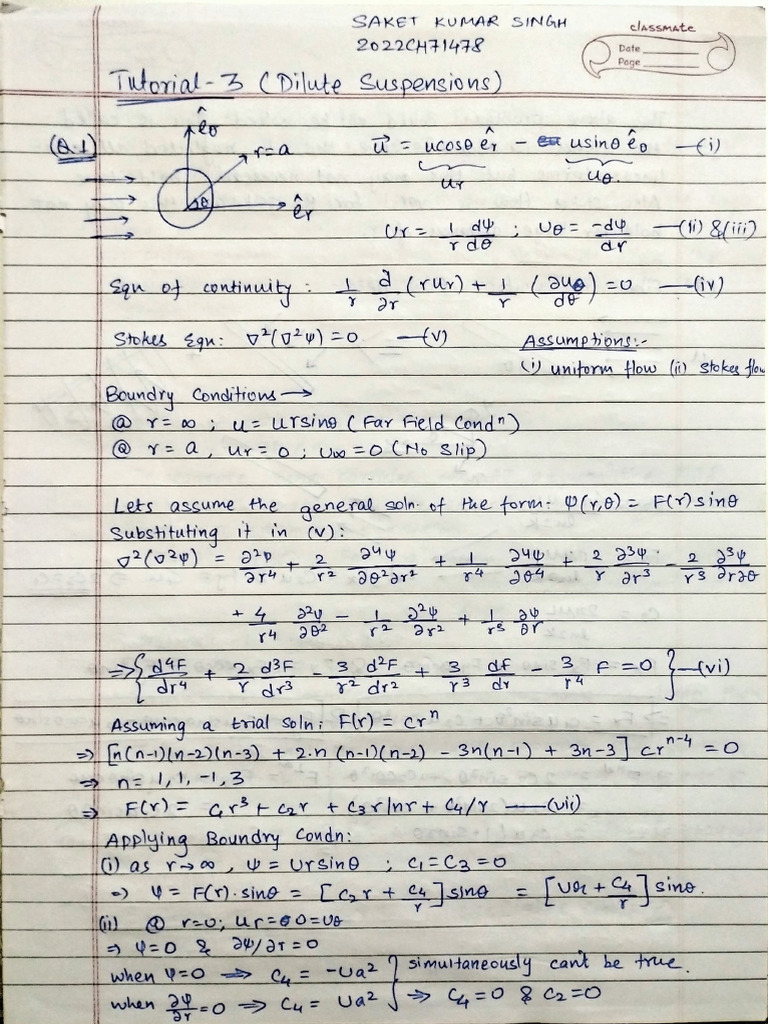 SAKET KUMAR SINGH
2022CH71478
classmate
Date
Page
Tutorial-3 (Dilute Suspensions)
(Q.1) êθ r=a êr θ
u⃗ = ucosθ êr - usinθ êθ —(i)
ur uθ.
ur = 1/r dψ/dθ ; uθ = -dψ/dr —(ii) &(iii)
Eqn of continuity : 1/r d/∂r (rur) + 1/r (∂uθ/dθ) = 0 —(iv)
Stokes Eqn: ∇²(∇²ψ) = 0 —(v)
Assumptions:-
(i) uniform flow (ii) stokes flow
Boundry Conditions →
@ r = ∞ ; u = ursinθ (Far Field Condⁿ)
@ r = a , ur = 0 ; u∞ = 0 (No Slip)
Lets assume the general soln. of the form: ψ(r,θ) = F(r)sinθ
Substituting it in (v):
∇²(∇²ψ) = ∂²ψ/∂r⁴ + 2/r² ∂⁴ψ/∂θ²∂r² + 1/r⁴ ∂⁴ψ/∂θ⁴ + 2/r ∂³ψ/∂r³ - 2/r³ ∂³ψ/∂r∂θ
+ 4/r⁴ ∂²ψ/∂θ² - 1/r² ∂²ψ/∂r² + 1/r³ ∂ψ/∂r
⇒ { d⁴F/dr⁴ + 2/r d³F/dr³ - 3/r² d²F/dr² + 3/r³ df/dr - 3/r⁴ F = 0 } —(vi)
Assuming a trial soln: F(r) = crⁿ
⇒ [n(n-1)(n-2)(n-3) + 2.n (n-1)(n-2) - 3n(n-1) + 3n-3] crⁿ⁻⁴ = 0
⇒ n = 1, 1, -1, 3
⇒ F(r) = c₁r³ + c₂r + c₃rlnr + c₄/r —(vii)
Applying Boundry Condn:
(i) as r→∞ , ψ = Ursinθ ; c₁ = c₃ = 0
⇒ ψ = F(r).sinθ = [c₂r + c₄/r] sinθ = [Ur + c₄/r] sinθ.
(ii) @ r=0; ur = 0 = uθ
⇒ ψ=0 & ∂ψ/∂r = 0
when ψ=0 ⇒ c₄ = -Ua² } simultaneously can't be true.
when ∂ψ/∂r = 0 ⇒ c₄ = Ua² } ⇒ c₄ = 0 & c₂ = 0